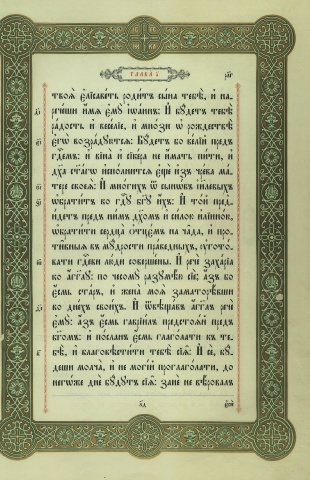 ГЛАВА́ А҃
твоѧ̀ є҆лїсаве́тъ роди́тъ сы́на тебѣ̀, и҆ на-
рече́ши и҆́мѧ є҆мꙋ̀ і҆ѡа́ннъ: И҆ бꙋ́детъ тебѣ̀
ра́дость и҆ весе́лїе, и҆ мно́зи ѡ҆ рождествѣ̀
є҆гѡ̀ возра́дꙋютсѧ: Бꙋ́детъ бо ве́лїй предъ
гд҇емъ: и҆ вїна̀ и҆ сїке́ра не и҆́мать пи́ти, и҆
дх҃а ст҃а́гѡ и҆спо́лнитсѧ є҆щѐ и҆з̾ чре́ва ма́-
тере своеѧ̀: И҆ мнѡ́гихъ ѿ сынѡ́въ і҆и҃левыхъ
ѡ҆брати́тъ ко гд҇ꙋ бг҃ꙋ и҆́хъ: И҆ то́й пред̾-
и́детъ пред̾ ни́мъ дꙋ́хомъ и҆ си́лою и҆лїино́ю,
ѡ҆брати́ти сердца̀ ѻ҆тцє́мъ на ча̑да, и҆
проти̑вныѧ въ мꙋ́дрости првⷣныхъ, ᲂу҆гото́-
вати гд҇еви лю́ди совершє́ны. И҆ речѐ заха́рїа
ко а҆́гг҃лꙋ: по чесомꙋ̀ разꙋмѣ́ю сїѐ; а҆́зъ бо
є҆́смь ста́ръ, и҆ жена̀ моѧ̀ заматорѣ́вши
во дне́хъ свои́хъ. И҆ ѿвѣща́въ а҆́гг҃лъ речѐ
є҆мꙋ̀: а҆́зъ є҆́смь гаврїи́лъ предстоѧ́й пред̾
бг҃омъ: и҆ по́сланъ є҆́смь глаго́лати къ те-
бѣ̀, и҆ благовѣсти́ти тебѣ̀ сїѧ̑: И҆ сѐ, бꙋ́-
деши молчѧ̀, и҆ не могі́й проглаго́лати, до
негѡ́же днѐ бꙋ́дꙋтъ сїѧ̑: занѐ не вѣ́ровалъ